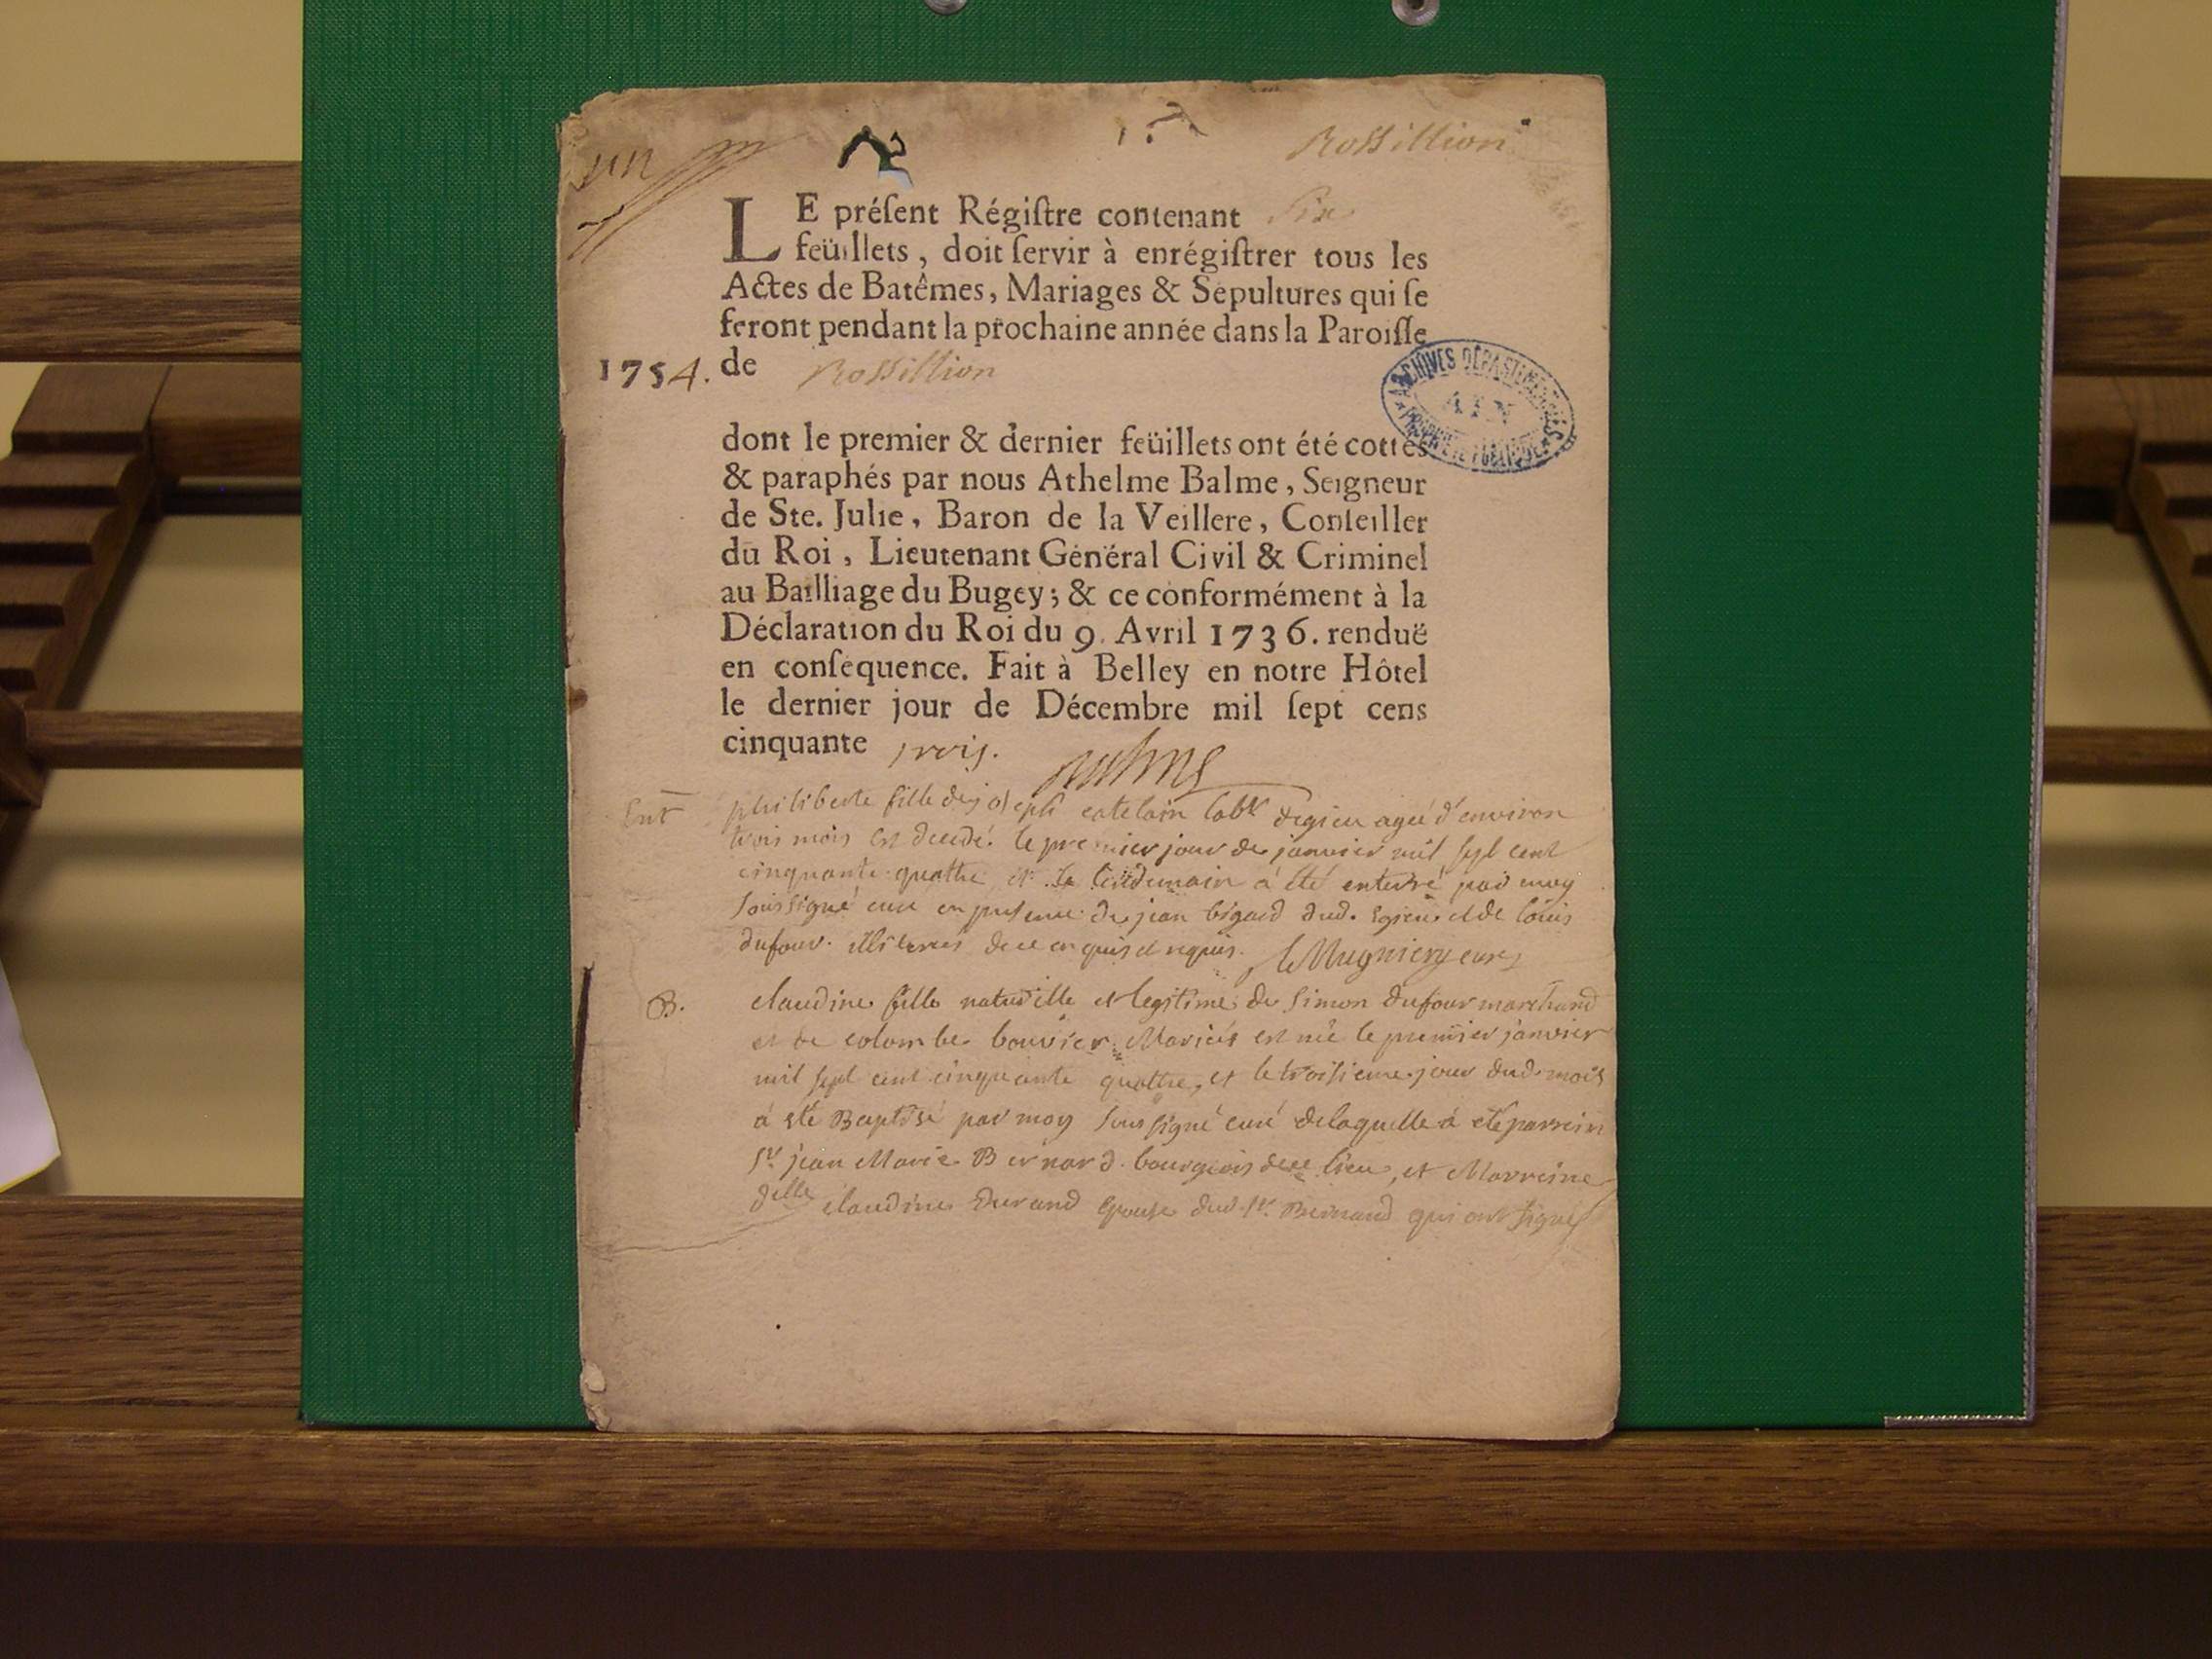 un
Rossillion
LE préſent Régiſtre contenant six
feüillets, doit ſervir à enrégiſtrer tous les
Actes de Batêmes, Mariages & Sépultures qui ſe
feront pendant la prochaine année dans la Paroiſſe
1754. de Rossillion
ARCHIVES DÉPARTEMENTALES
AIN
dont le premier & dernier feüillets ont été cottés
& paraphés par nous Athelme Balme, Seigneur
de Ste. Julie, Baron de la Veillere, Conſeiller
du Roi, Lieutenant Général Civil & Criminel
au Bailliage du Bugey; & ce conformément à la
Déclaration du Roi du 9. Avril 1736. renduë
en conſéquence. Fait à Belley en notre Hôtel
le dernier jour de Décembre mil ſept cens
cinquante trois. Balme
Ent philiberte fille de joseph catelain labr degieu agée d'environ
trois mois est decedé le premier jour de janvier mil sept cent
cinquante quatre et le lendemain a été enterré par moy
soussigné curé en presence de jean bigard dud. Egieu et de louis
dufour. illiterés de ce enquis et requis. Mugniery curé
B. claudine fille naturelle et legitime de simon dufour marchand
et de colombe bouvier Mariés est née le premier janvier
mil sept cent cinquante quatre, et le troisieme jour dud. mois
a été Baptisé par moy soussigné curé de laquelle a eté parrein
sr. jean Marie Bernard bourgeois de ce lieu, et Marreine
delle claudine Durand Epouse dud. sr. Bernard qui ont signés